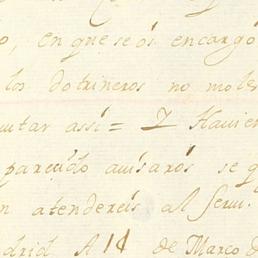 o, en que se ôs encargò
los dotrineros no mole
cutar assi = Y Havien
parecido avisaros se q
n atendereis al servi.
drid A 14 de Marco d